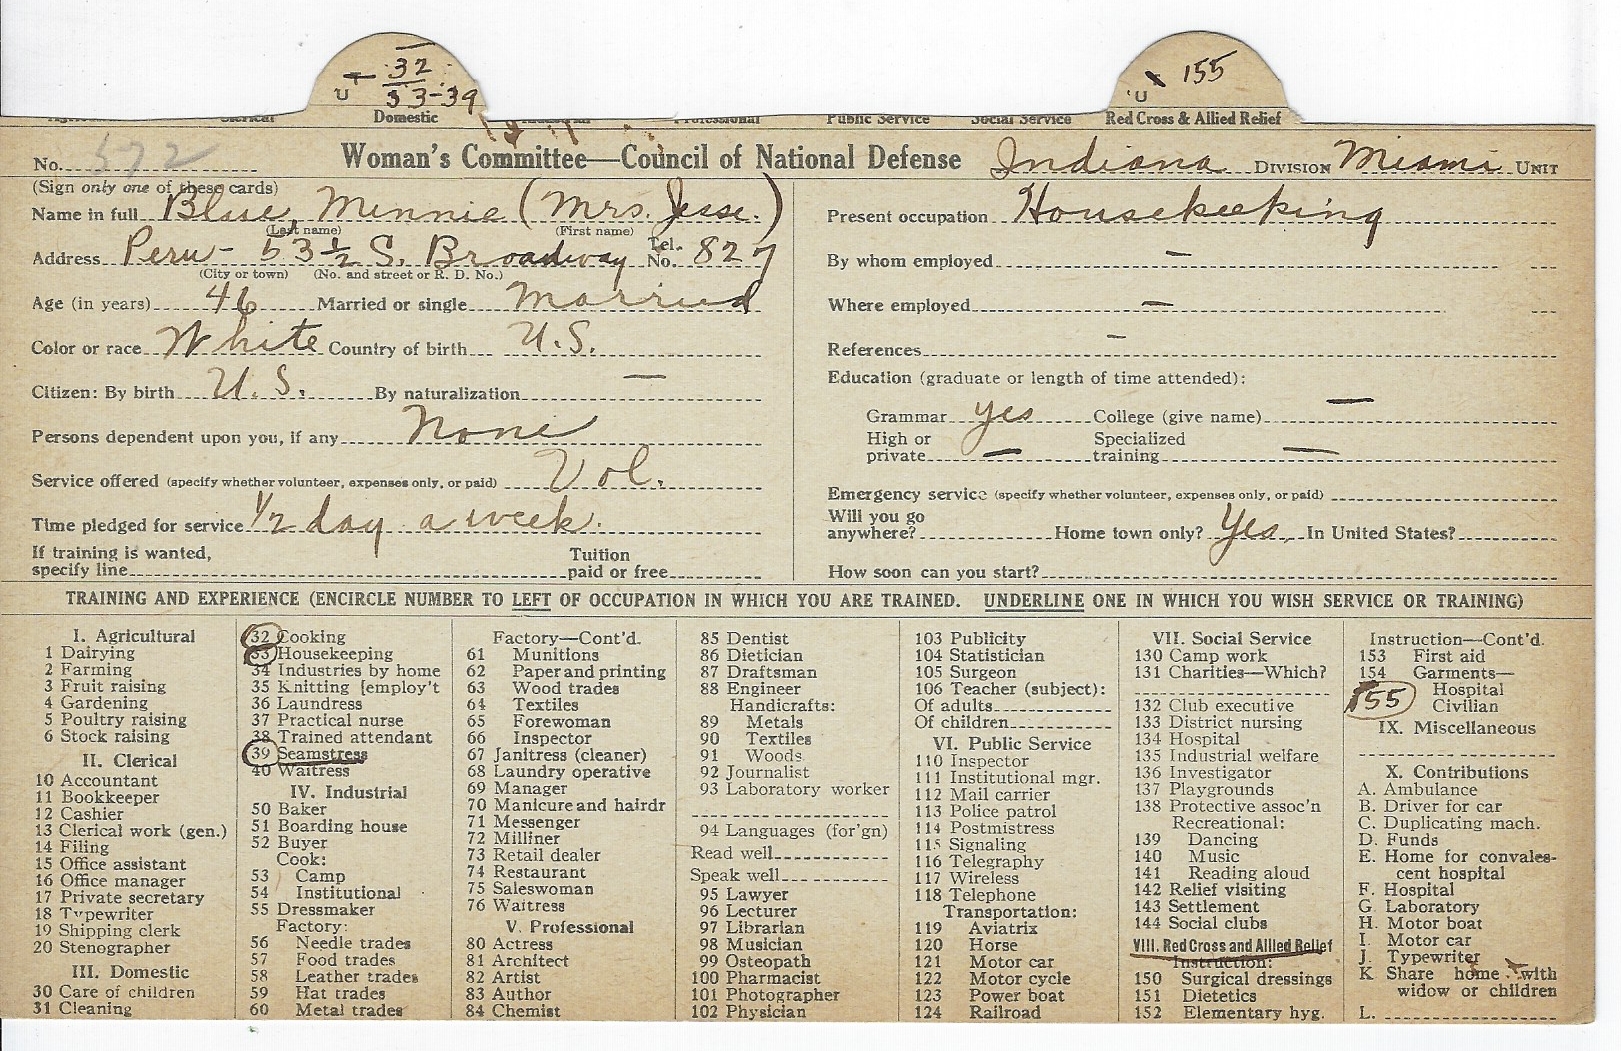 32
U 33-39
U 155
Domestic
Public Service Social Service Red Cross & Allied Relief
No. 572 Woman's Committee—Council of National Defense Indiana Division Miami Unit
(Sign only one of these cards)
Name in full Blue, Minnie (Mrs. Jesse.)
(Last name) (First name)
Address Peru - 53 1/2 S. Broadway Tel. No. 827
(City or town) (No. and street or R. D. No.)
Age (in years) 46 Married or single Married
Color or race White Country of birth U.S.
Citizen: By birth U.S. By naturalization —
Persons dependent upon you, if any None
Service offered (specify whether volunteer, expenses only, or paid) Vol.
Time pledged for service 1/2 day a week.
If training is wanted, specify line Tuition paid or free
Present occupation Housekeeping
By whom employed —
Where employed —
References —
Education (graduate or length of time attended):
Grammar yes College (give name) —
High or private — Specialized training —
Emergency service (specify whether volunteer, expenses only, or paid)
Will you go anywhere? Home town only? Yes In United States?
How soon can you start?
TRAINING AND EXPERIENCE (ENCIRCLE NUMBER TO LEFT OF OCCUPATION IN WHICH YOU ARE TRAINED. UNDERLINE ONE IN WHICH YOU WISH SERVICE OR TRAINING)
I. Agricultural
1 Dairying
2 Farming
3 Fruit raising
4 Gardening
5 Poultry raising
6 Stock raising
II. Clerical
10 Accountant
11 Bookkeeper
12 Cashier
13 Clerical work (gen.)
14 Filing
15 Office assistant
16 Office manager
17 Private secretary
18 Typewriter
19 Shipping clerk
20 Stenographer
III. Domestic
30 Care of children
31 Cleaning
32 Cooking
33 Housekeeping
34 Industries by home
35 Knitting [employ't
36 Laundress
37 Practical nurse
38 Trained attendant
39 Seamstress
40 Waitress
IV. Industrial
50 Baker
51 Boarding house
52 Buyer
Cook:
53 Camp
54 Institutional
55 Dressmaker
Factory:
56 Needle trades
57 Food trades
58 Leather trades
59 Hat trades
60 Metal trades
Factory—Cont'd.
61 Munitions
62 Paper and printing
63 Wood trades
64 Textiles
65 Forewoman
66 Inspector
67 Janitress (cleaner)
68 Laundry operative
69 Manager
70 Manicure and hairdr
71 Messenger
72 Milliner
73 Retail dealer
74 Restaurant
75 Saleswoman
76 Waitress
V. Professional
80 Actress
81 Architect
82 Artist
83 Author
84 Chemist
85 Dentist
86 Dietician
87 Draftsman
88 Engineer
Handicrafts:
89 Metals
90 Textiles
91 Woods
92 Journalist
93 Laboratory worker
94 Languages (for'gn)
Read well
Speak well
95 Lawyer
96 Lecturer
97 Librarian
98 Musician
99 Osteopath
100 Pharmacist
101 Photographer
102 Physician
103 Publicity
104 Statistician
105 Surgeon
106 Teacher (subject):
Of adults
Of children
VI. Public Service
110 Inspector
111 Institutional mgr.
112 Mail carrier
113 Police patrol
114 Postmistress
115 Signaling
116 Telegraphy
117 Wireless
118 Telephone
Transportation:
119 Aviatrix
120 Horse
121 Motor car
122 Motor cycle
123 Power boat
124 Railroad
VII. Social Service
130 Camp work
131 Charities—Which?
132 Club executive
133 District nursing
134 Hospital
135 Industrial welfare
136 Investigator
137 Playgrounds
138 Protective assoc'n
Recreational:
139 Dancing
140 Music
141 Reading aloud
142 Relief visiting
143 Settlement
144 Social clubs
VIII. Red Cross and Allied Relief
Instruction:
150 Surgical dressings
151 Dietetics
152 Elementary hyg.
Instruction—Cont'd.
153 First aid
154 Garments—
Hospital
155 Civilian
IX. Miscellaneous
X. Contributions
A. Ambulance
B. Driver for car
C. Duplicating mach.
D. Funds
E. Home for convales-
cent hospital
F. Hospital
G. Laboratory
H. Motor boat
I. Motor car
J. Typewriter
K Share home with
widow or children
L.